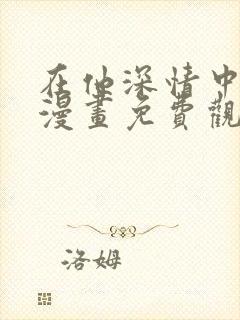 在他深情中
漫畫免費觀
洛姆